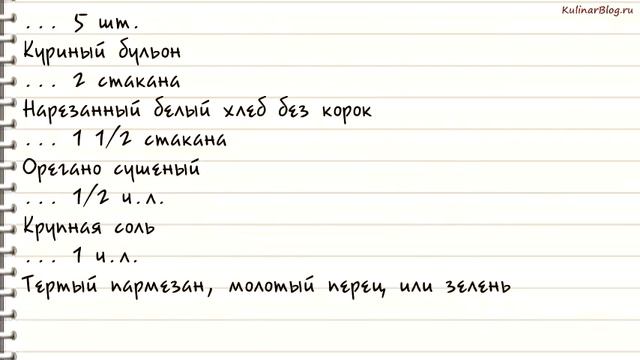 KulinarBlog.ru
... 5 шт.
Куриный бульон
... 2 стакана
Нарезанный белый хлеб без корок
... 1 1/2 стакана
Орегано сушеный
... 1/2 ч.л.
Крупная соль
... 1 ч.л.
Тертый пармезан, молотый перец или зелень